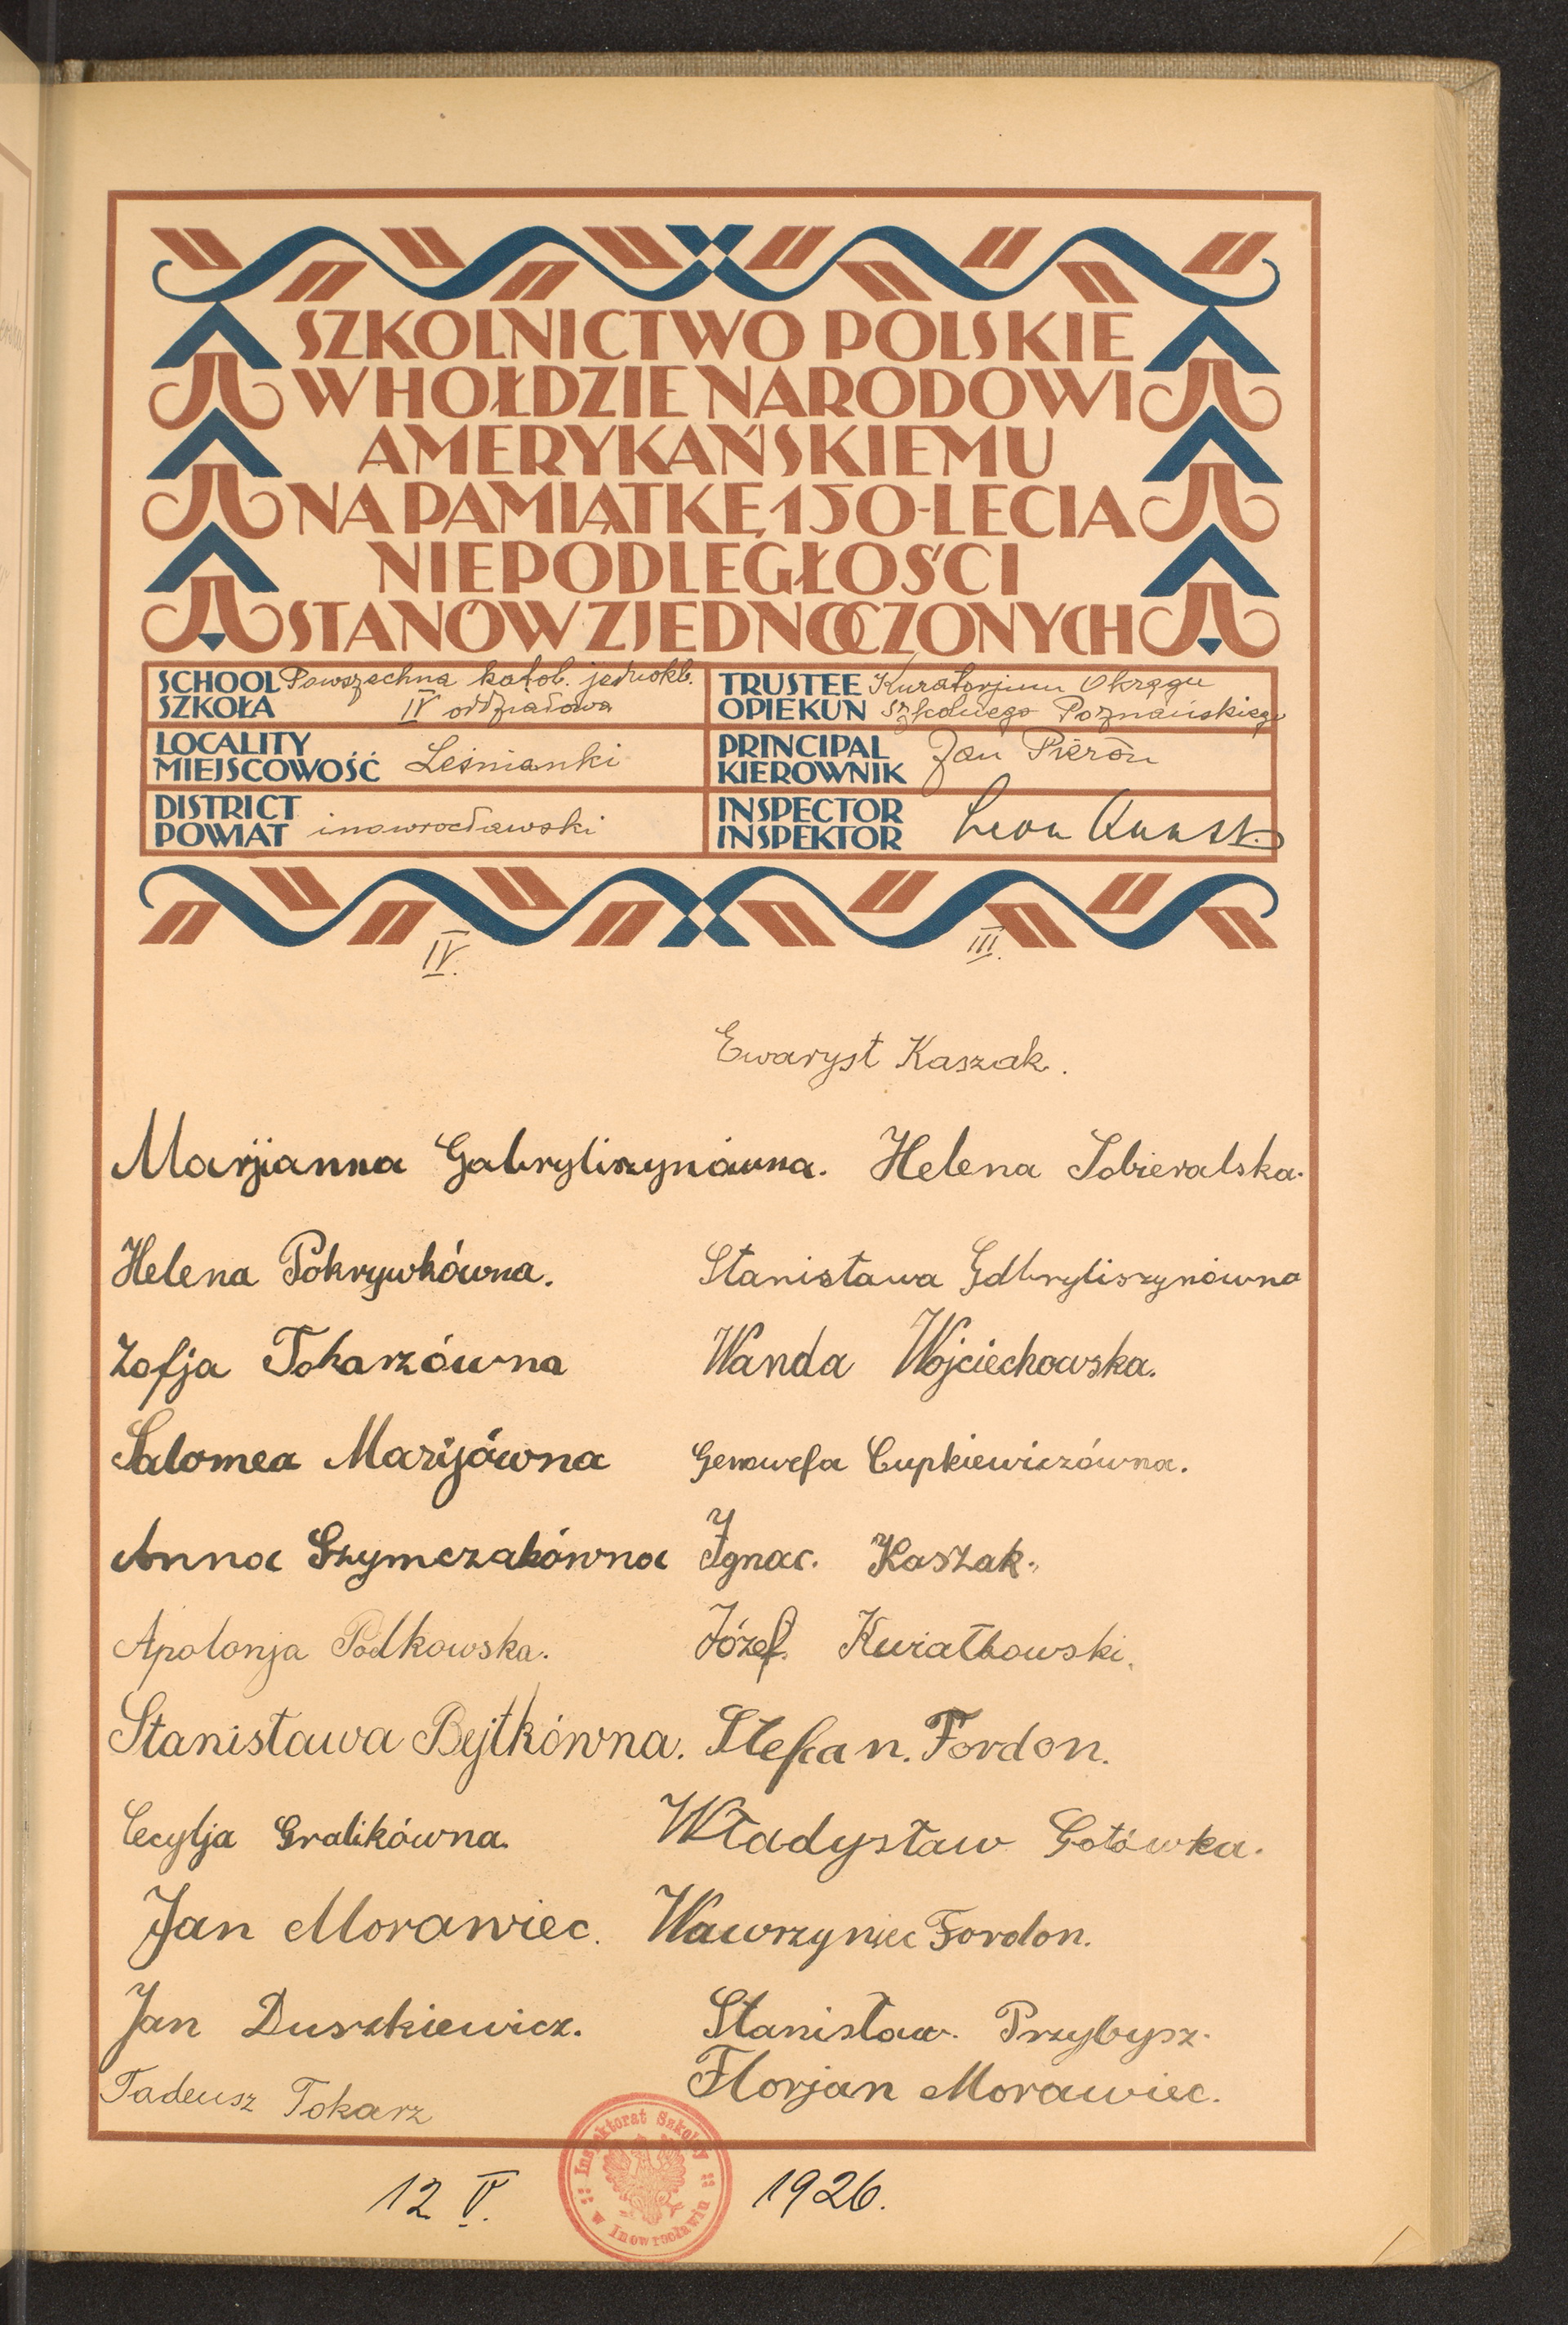 SZKOLNICTWO POLSKIE
W HOŁDZIE NARODOWI
AMERYKAŃSKIEMU
NA PAMIĄTKĘ 150-LECIA
NIEPODLEGŁOŚCI
STANÓW ZJEDNOCZONYCH
SCHOOL Powszechna katol. jednokl.
SZKOŁA IV oddziałowa
TRUSTEE Kuratorjum Okręgu
OPIEKUN szkolnego Poznańskiego
LOCALITY
MIEJSCOWOŚĆ Leśnianki
PRINCIPAL
KIEROWNIK Jan Pieron
DISTRICT
POWIAT inowrocławski
INSPECTOR
INSPEKTOR Leon Kunst.
IV. III.
Ewaryst Kaszak.
Marjianna Gabryliszynówna. Helena Sobieralska.
Helena Pokrywkówna. Stanisława Gabryliszynówna
Zofja Tokarzówna Wanda Wojciechowska.
Salomea Marijówna Genowefa Cupkiewiczówna.
Anna Szymczakówna Ignac. Kaszak.
Apolonja Podkowska. Józef. Kwiatkowski.
Stanisława Bejtkówna. Stefan. Fordon.
Cecylja Gralikówna. Władysław Gotówka.
Jan Morawiec. Wawrzyniec Fordon.
Jan Duszkiewicz. Stanisław. Przybysz.
Tadeusz Tokarz Florjan Morawiec.
Inspektorat Szkolny
w Inowrocławiu
12. V. 1926.